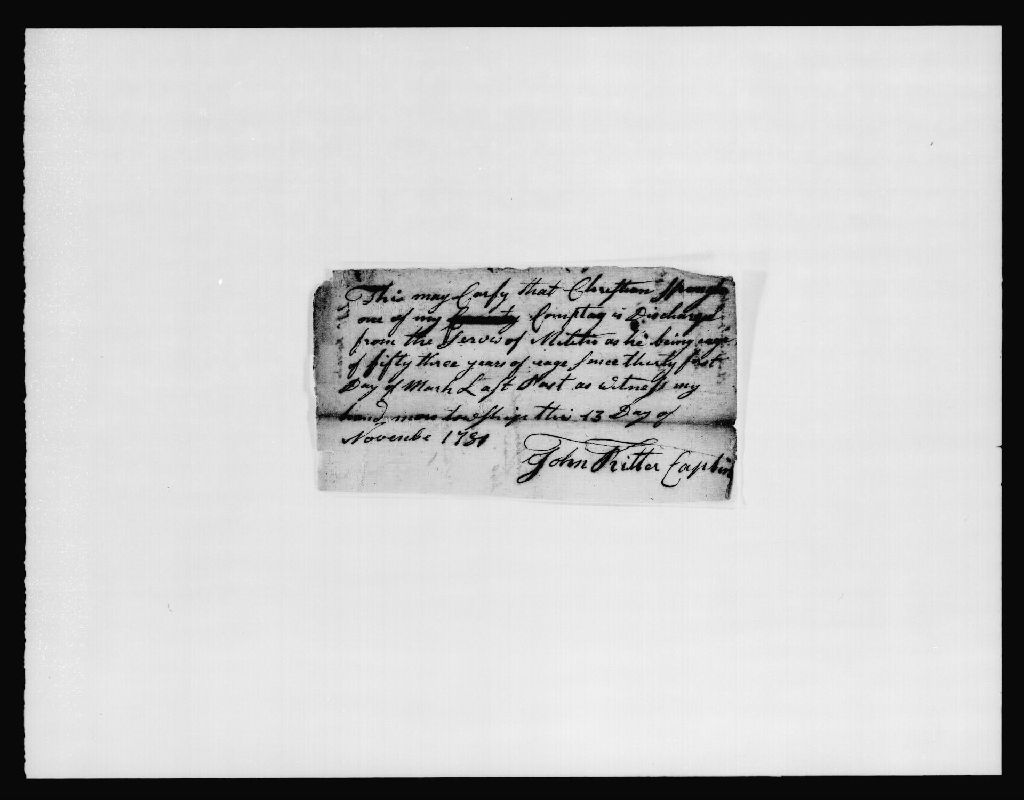 This may Carfy that Christian
one of my Comptay is Discharged
from the Servis of Militri as he being eage
of fifty three years of eage Since thirty first
Day of Mach Last Past as witness my
hand more township this 13 Day of
Novembe 1781
John Ritter Captin